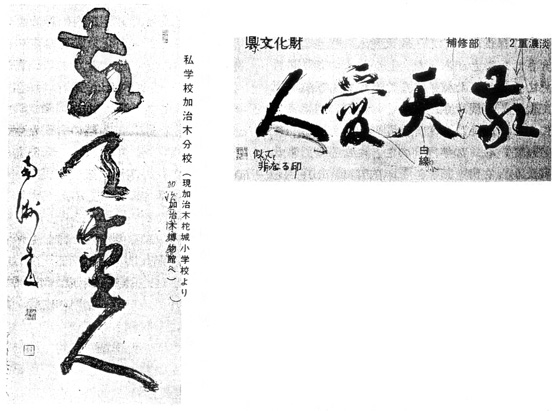 私学校加治木分校(現加治木柁城小学校より
加治木博物館へ)
敬天愛人
南洲書
県文化財
補修部
2重濃淡
敬天愛人
白線
似て
非なる印